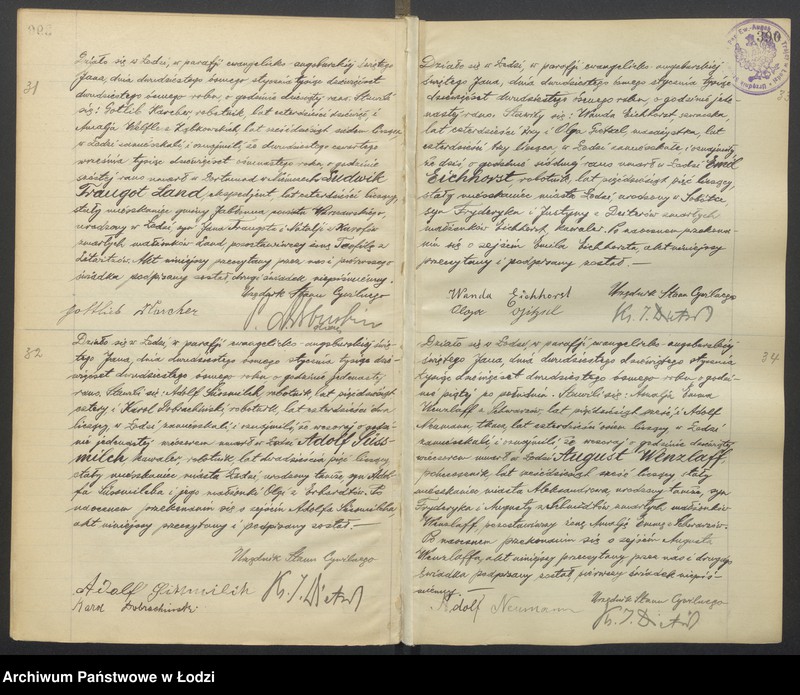 31
Działo się w Łodzi, w parafji ewangelicko-augsburskiej świętego
Jana, dnia dwudziestego ósmego stycznia tysiąc dziewięćset
dwudziestego ósmego roku, o godzinie rano. Stawili
się: Gotlib Karcher, robotnik, lat czterdzieści dziewięć i
Amalja lat sześćdziesiąt siedem licząca,
w Łodzi zamieszkali i oznajmili, że dwudziestego czwartego
września tysiąc dziewięćset roku, o godzinie
szóstej rano umarł w Dortmund w Niemczech Ludwik
Traugot Land, ekspedjent, lat czterdzieści liczący,
stały mieszkaniec gminy Jabłonna powiatu Warszawskiego,
urodzony w Łodzi, syn Jana Traugota i Natalji z
zmarłych małżonków Land, pozostawiwszy żonę Teofilę z
Akt niniejszy przeczytany przez nas i pierwszego
świadka podpisany został, drugi świadek niepiśmienny.
Urzędnik Stanu Cywilnego
Gottlieb Karcher
32
Działo się w Łodzi, w parafji ewangelicko-augsburskiej świę-
tego Jana, dnia dwudziestego ósmego stycznia tysiąc dzie-
więćset dwudziestego ósmego roku o godzinie jedenastej
rano. Stawili się: Adolf Süssmilch, robotnik, lat pięćdziesiąt
cztery i Karol Dobrachiński, robotnik, lat czterdzieści dwa
liczący, w Łodzi zamieszkali i oznajmili, że wczoraj o godzi-
nie jedenastej wieczorem umarł w Łodzi Adolf Süss-
milch, kawaler, robotnik, lat dwadzieścia pięć liczący
stały mieszkaniec miasta Łodzi, urodzony tamże, syn Adol-
fa Süssmilcha i jego małżonki Olgi z Erhardtów. Po
naocznem przekonaniu się o zejściu Adolfa Süssmilcha,
akt niniejszy przeczytany i podpisany został.—
Urzędnik Stanu Cywilnego
Adolf Süssmilch
Karol Dobrachinski
390
Działo się w Łodzi, w parafji ewangelicko-augsburskiej
świętego Jana, dnia dwudziestego ósmego stycznia tysiąc
dziewięćset dwudziestego ósmego roku, o godzinie jede-
nastej rano. Stawiły się: Wanda Eichhorst, szwaczka,
lat czterdzieści trzy i Olga lat
czterdzieści trzy liczące, w Łodzi zamieszkałe i oznajmiły,
że dziś, o godzinie siódmej rano umarł w Łodzi Emil
Eichhorst, robotnik, lat pięćdziesiąt pięć liczący,
stały mieszkaniec miasta Łodzi, urodzony w Sobótce,
syn Fryderyka i Justyny z zmarłych
małżonków Eichhorst, kawaler. Po naocznem przekona-
niu się o zejściu Emila Eichhorsta, akt niniejszy
przeczytany i podpisany został.—
Wanda Eichhorst
Urzędnik Stanu Cywilnego
34
Działo się w Łodzi, w parafji ewangelicko-augsburskiej
świętego Jana, dnia dwudziestego dziewiątego stycznia
tysiąc dziewięćset dwudziestego ósmego roku o godzi-
nie piątej po południu. Stawili się: Amalja Emma
Wenzlaff z lat pięćdziesiąt sześć i Adolf
Neumann, tkacz, lat czterdzieści osiem liczący w Łodzi
zamieszkali, i oznajmili, że wczoraj o godzinie dziewiątej
wieczorem umarł w Łodzi August Wenzlaff,
pończosznik, lat sześćdziesiąt sześć liczący stały
mieszkaniec miasta Aleksandrowa, urodzony tamże, syn
Fryderyka i Augusty z Schmidtów zmarłych małżonków
Wenzlaff, pozostawiwszy żonę Amalję Emmę z
Po naocznem przekonaniu się o zejściu Augusta
Wenzlaffa, akt niniejszy przeczytany przez nas i drugiego
świadka podpisany został, pierwszy świadek niepiś-
mienny.—
Urzędnik Stanu Cywilnego
Adolf Neumann
Archiwum Państwowe w Łodzi